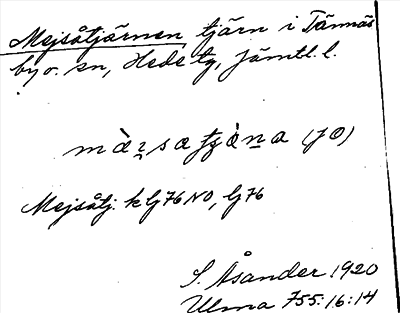 Mejsåtjärnen tjärn i Tännäs
by o. sn, Hede tg, Jämtl. l.
(jo)
Mejsåtj. k lj 76 NO, lj 76
S. Åsander 1920
Ulma 755:16:14